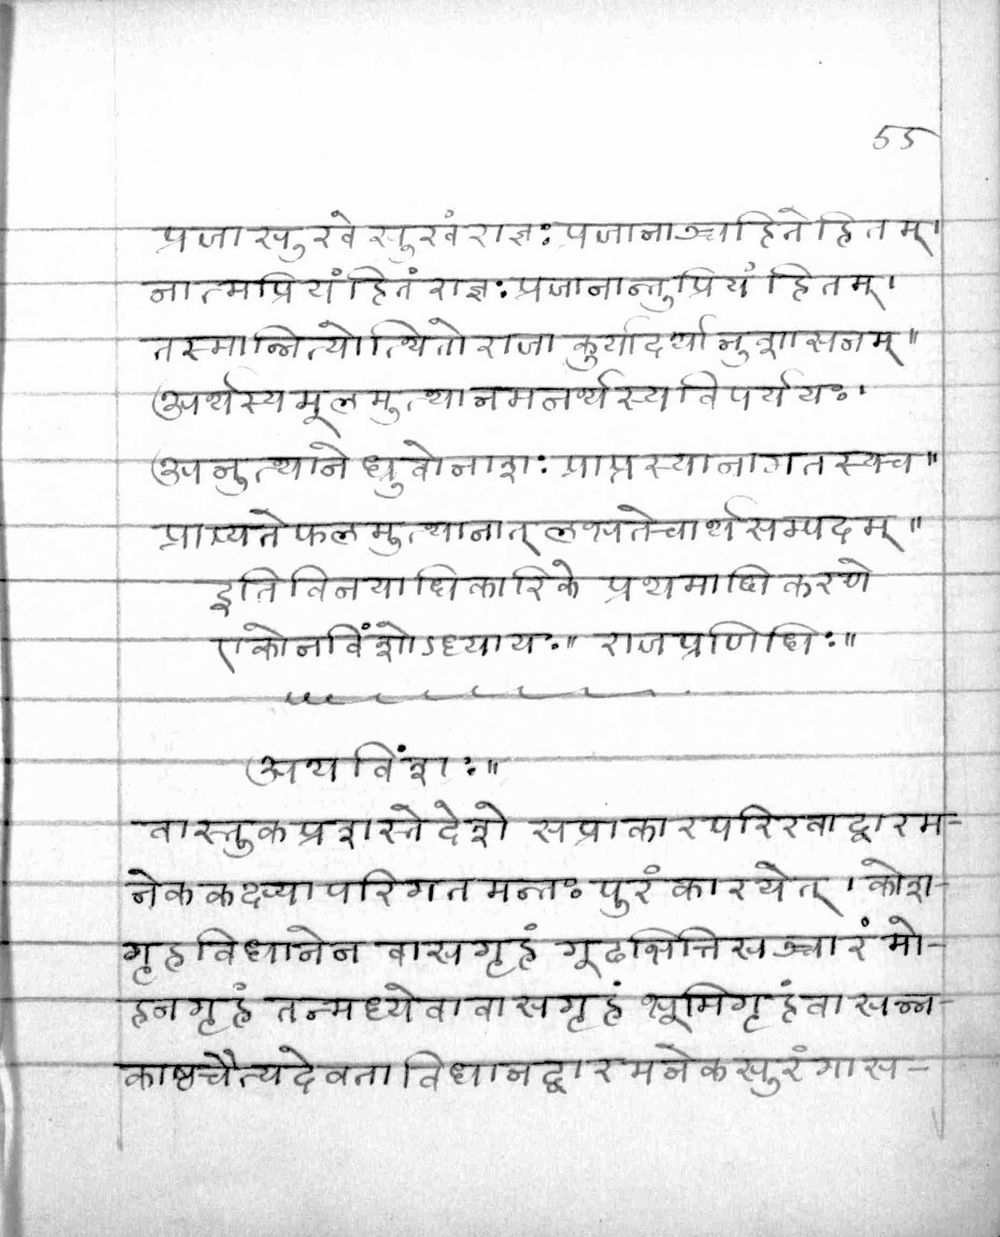 55
प्रजासुखे सुखं राज्ञः प्रजानाञ्च हिते हितम्।
नात्मप्रियं हितं राज्ञः प्रजानान्तु प्रियं हितम्।
तस्मान्नित्योत्थितो राजा कुर्यादर्थानुशासनम्॥
अर्थस्य मूलमुत्थानमनर्थस्य विपर्ययः।
अनुत्थाने ध्रुवो नाशः प्राप्तस्यानागतस्य च॥
प्राप्यते फलमुत्थानात् लभते चार्थसम्पदम्॥
इति विनयाधिकारिके प्रथमाधिकरणे
एकोनविंशोऽध्यायः॥ राजप्रणिधिः॥
अथ विंशः॥
वास्तुकप्रशस्ते देशे सप्राकारपरिखाद्वारम-
नेककक्ष्यापरिगतमन्तःपुरं कारयेत्। कोश-
गृहविधानेन वासगृहं गूढभित्तिसञ्चारं मो-
हनगृहं तन्मध्ये वा वासगृहं भूमिगृहं वासन्न-
काष्ठचैत्यदेवताविधानद्वारमनेकसुरंगास-